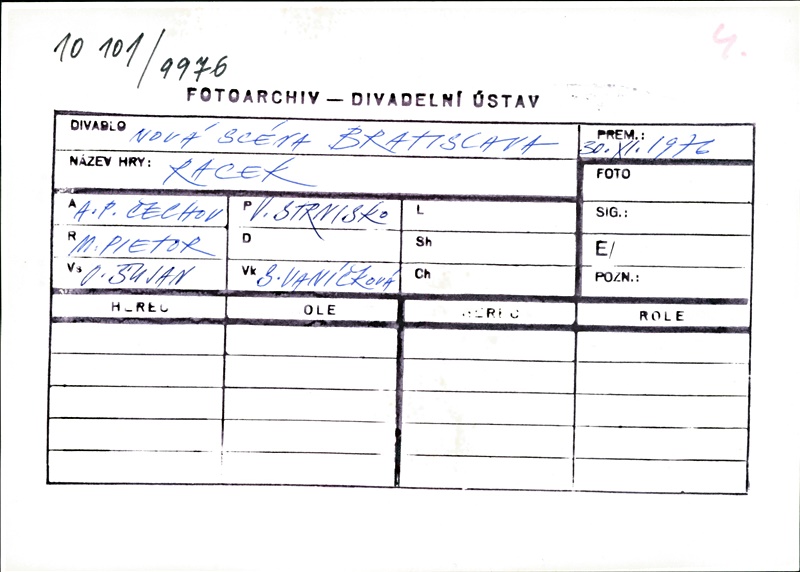 4.
10 101/9976
FOTOARCHIV — DIVADELNÍ ÚSTAV
DIVADLO NOVÁ SCÉNA BRATISLAVA
PREM.: 30. XI. 1976
NÁZEV HRY: RACEK
FOTO
A A. P. ČECHOV
P V. STRNISKO
L
SIG.:
R M. PIETOR
D
Sh
E/
Vs O. ŠUJAN
Vk S. VANÍČKOVÁ
Ch
POZN.:
HEREC OLE HEREC ROLE